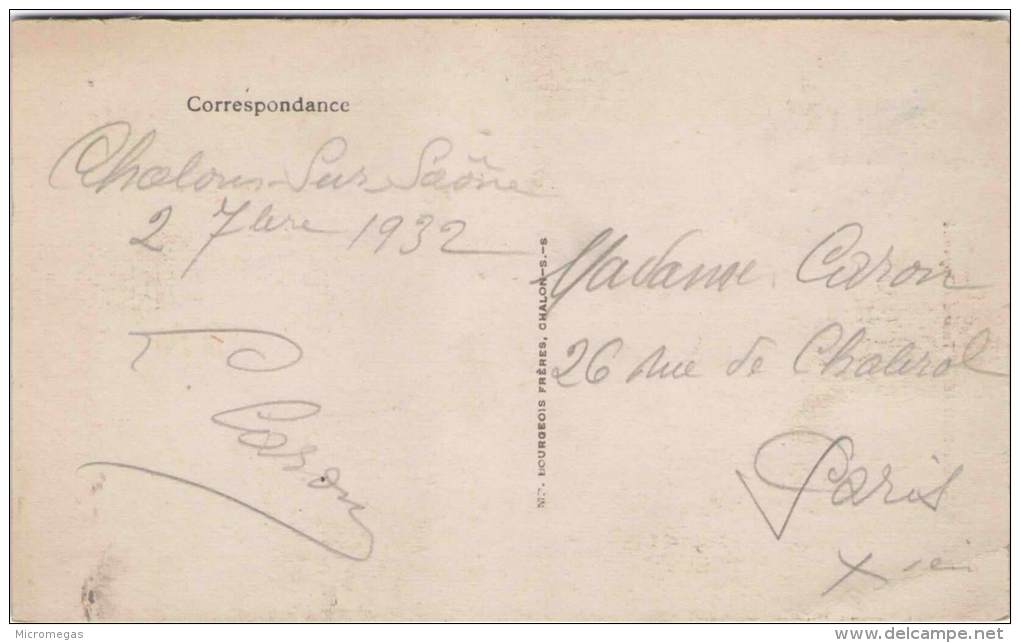 Correspondance
Chalons-Sur-Saône
2 7bre 1932
Caron
BOURGEOIS FRÈRES, CHALON-S.-S
Madame Caron
26 rue de Chabrol
Paris
X
Micromegas
www.delcampe.net